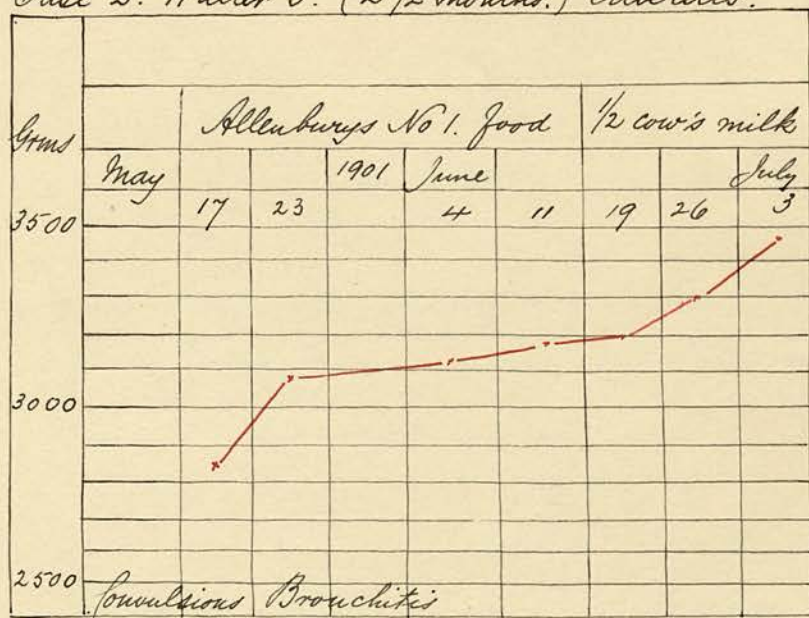 Case 2. Walter S. (2 1/2 months.)
Allenburys No 1. food 1/2 cow's milk
Grms
May 1901 June July
17 23 4 11 19 26 3
3500
3000
2500
Convulsions Bronchitis